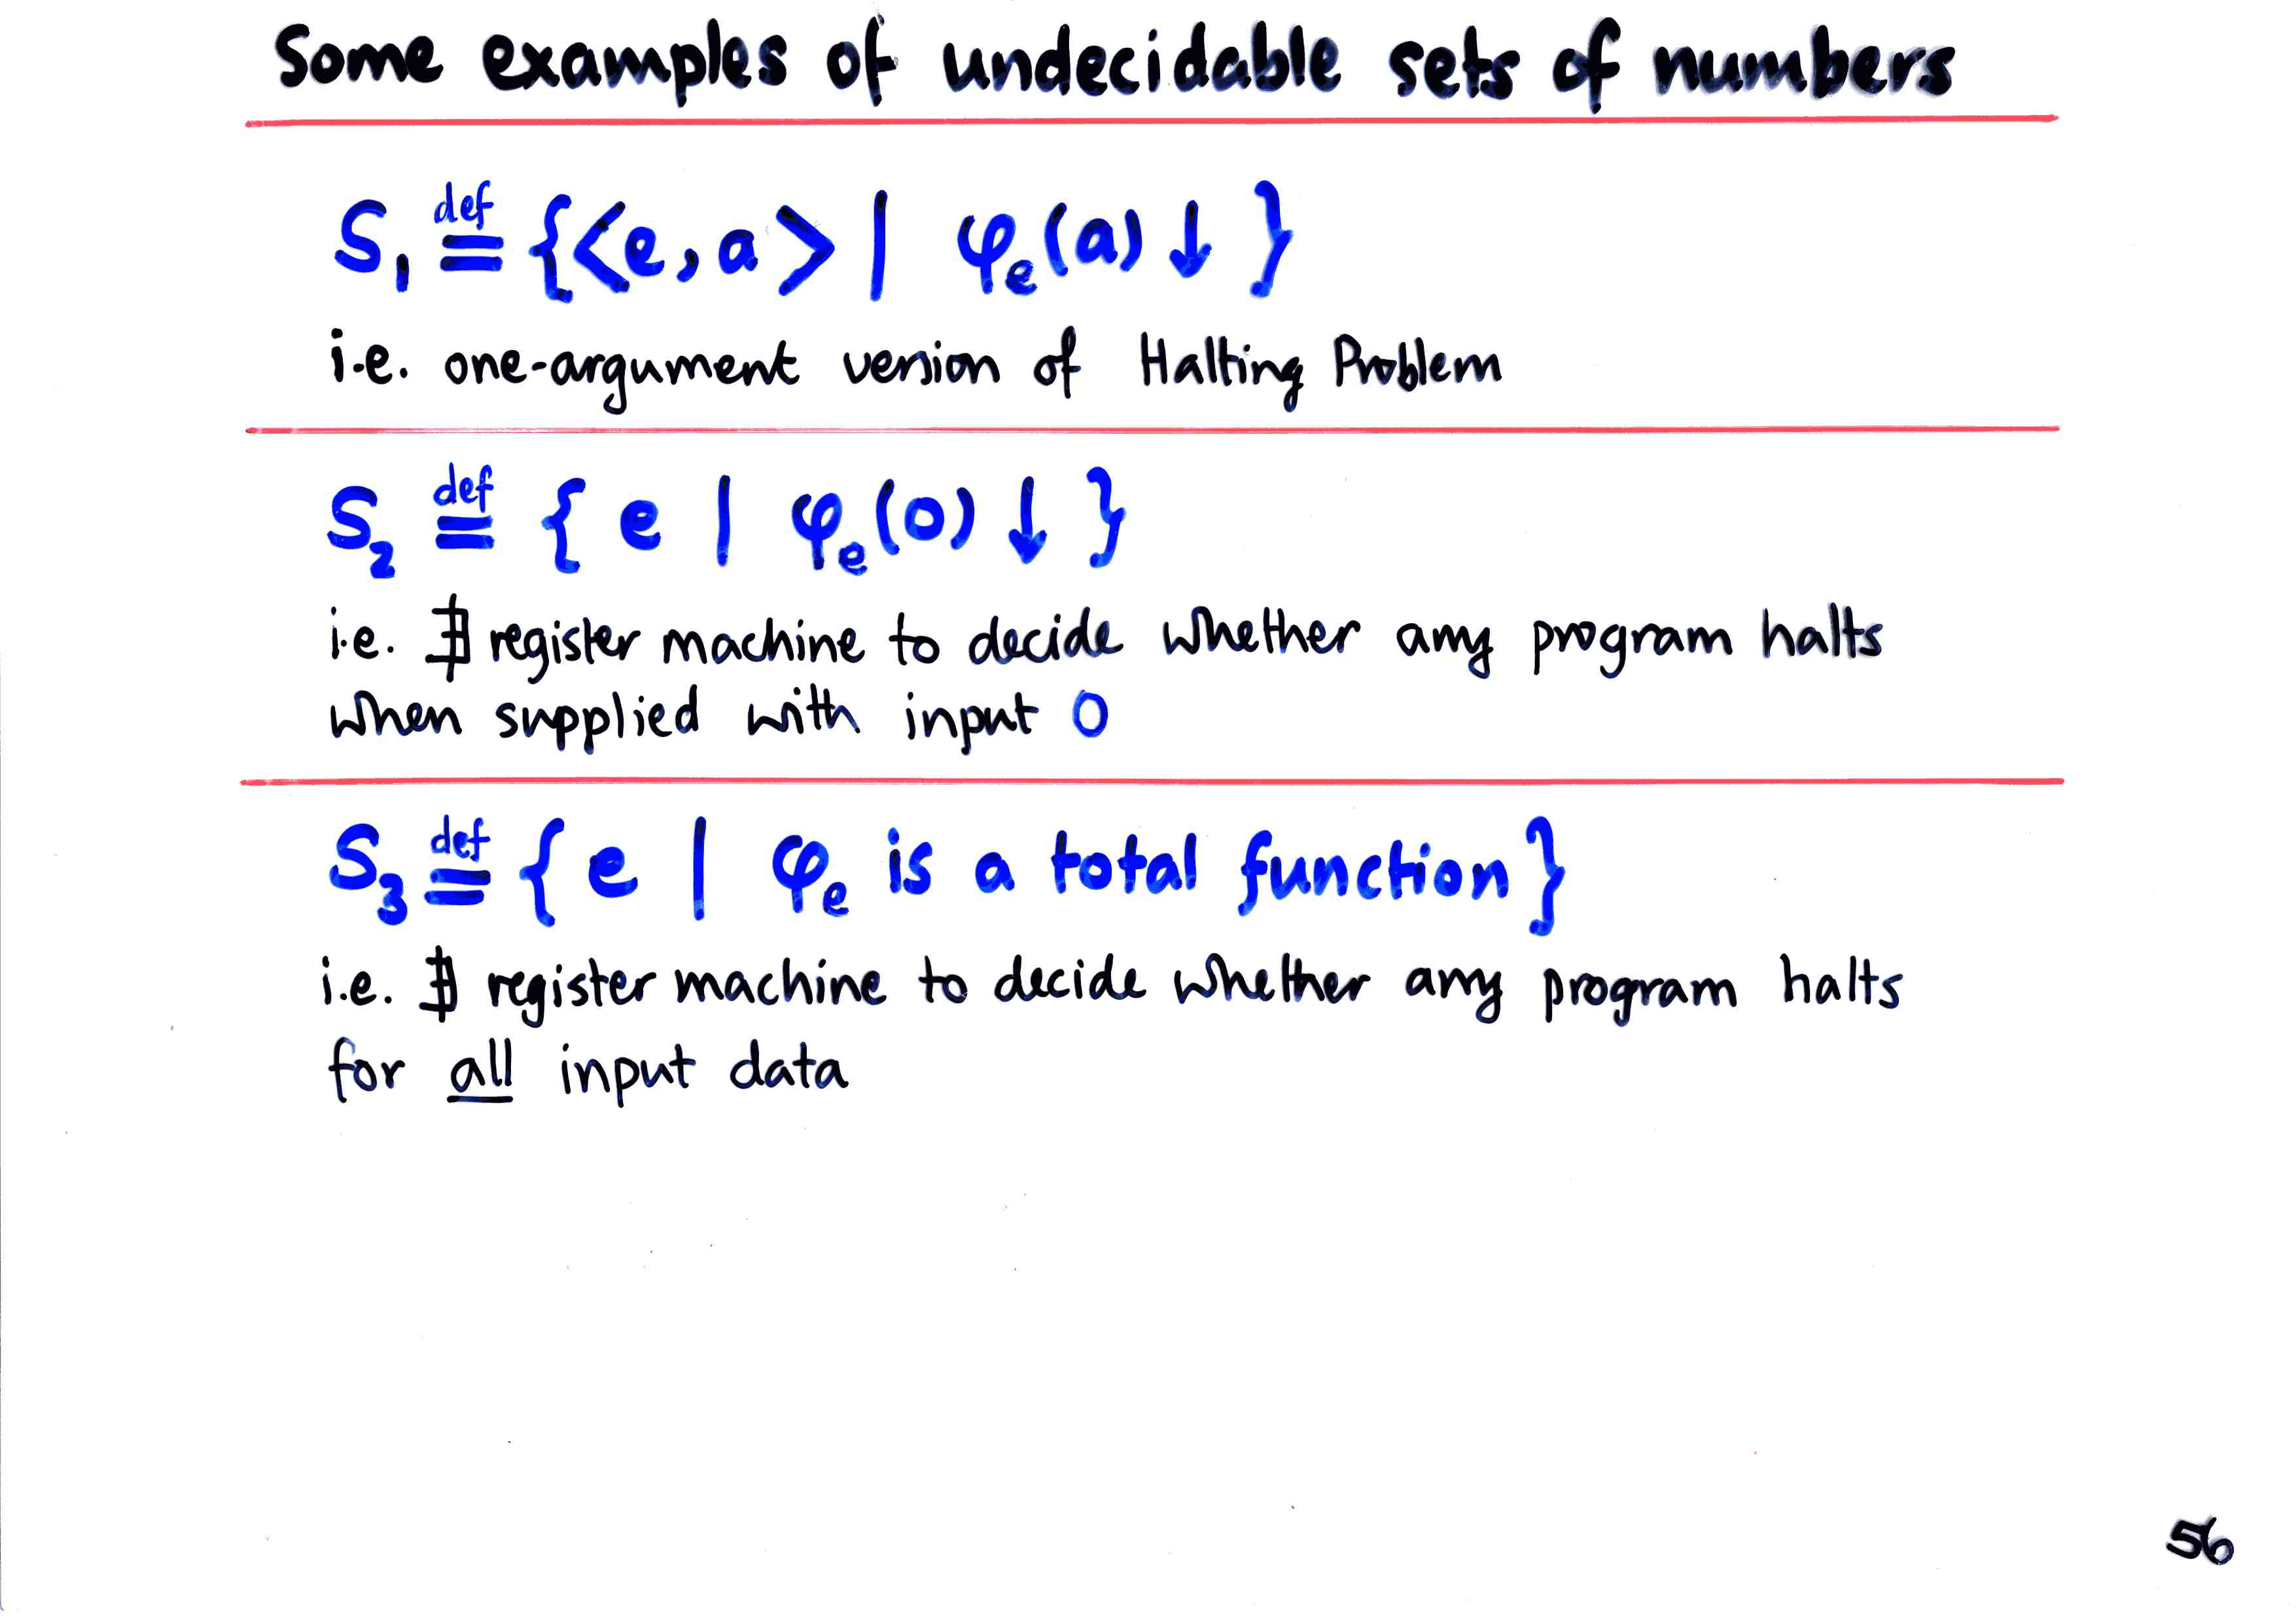 Some examples of undecidable sets of numbers
S₁ ≝ {<e,a> | φₑ(a)↓ }
i.e. one-argument version of Halting Problem
S₂ ≝ { e | φₑ(0)↓ }
i.e. ∄ register machine to decide whether any program halts
when supplied with input 0
S₃ ≝ { e | φₑ is a total function}
i.e. ∄ register machine to decide whether any program halts
for all input data
56